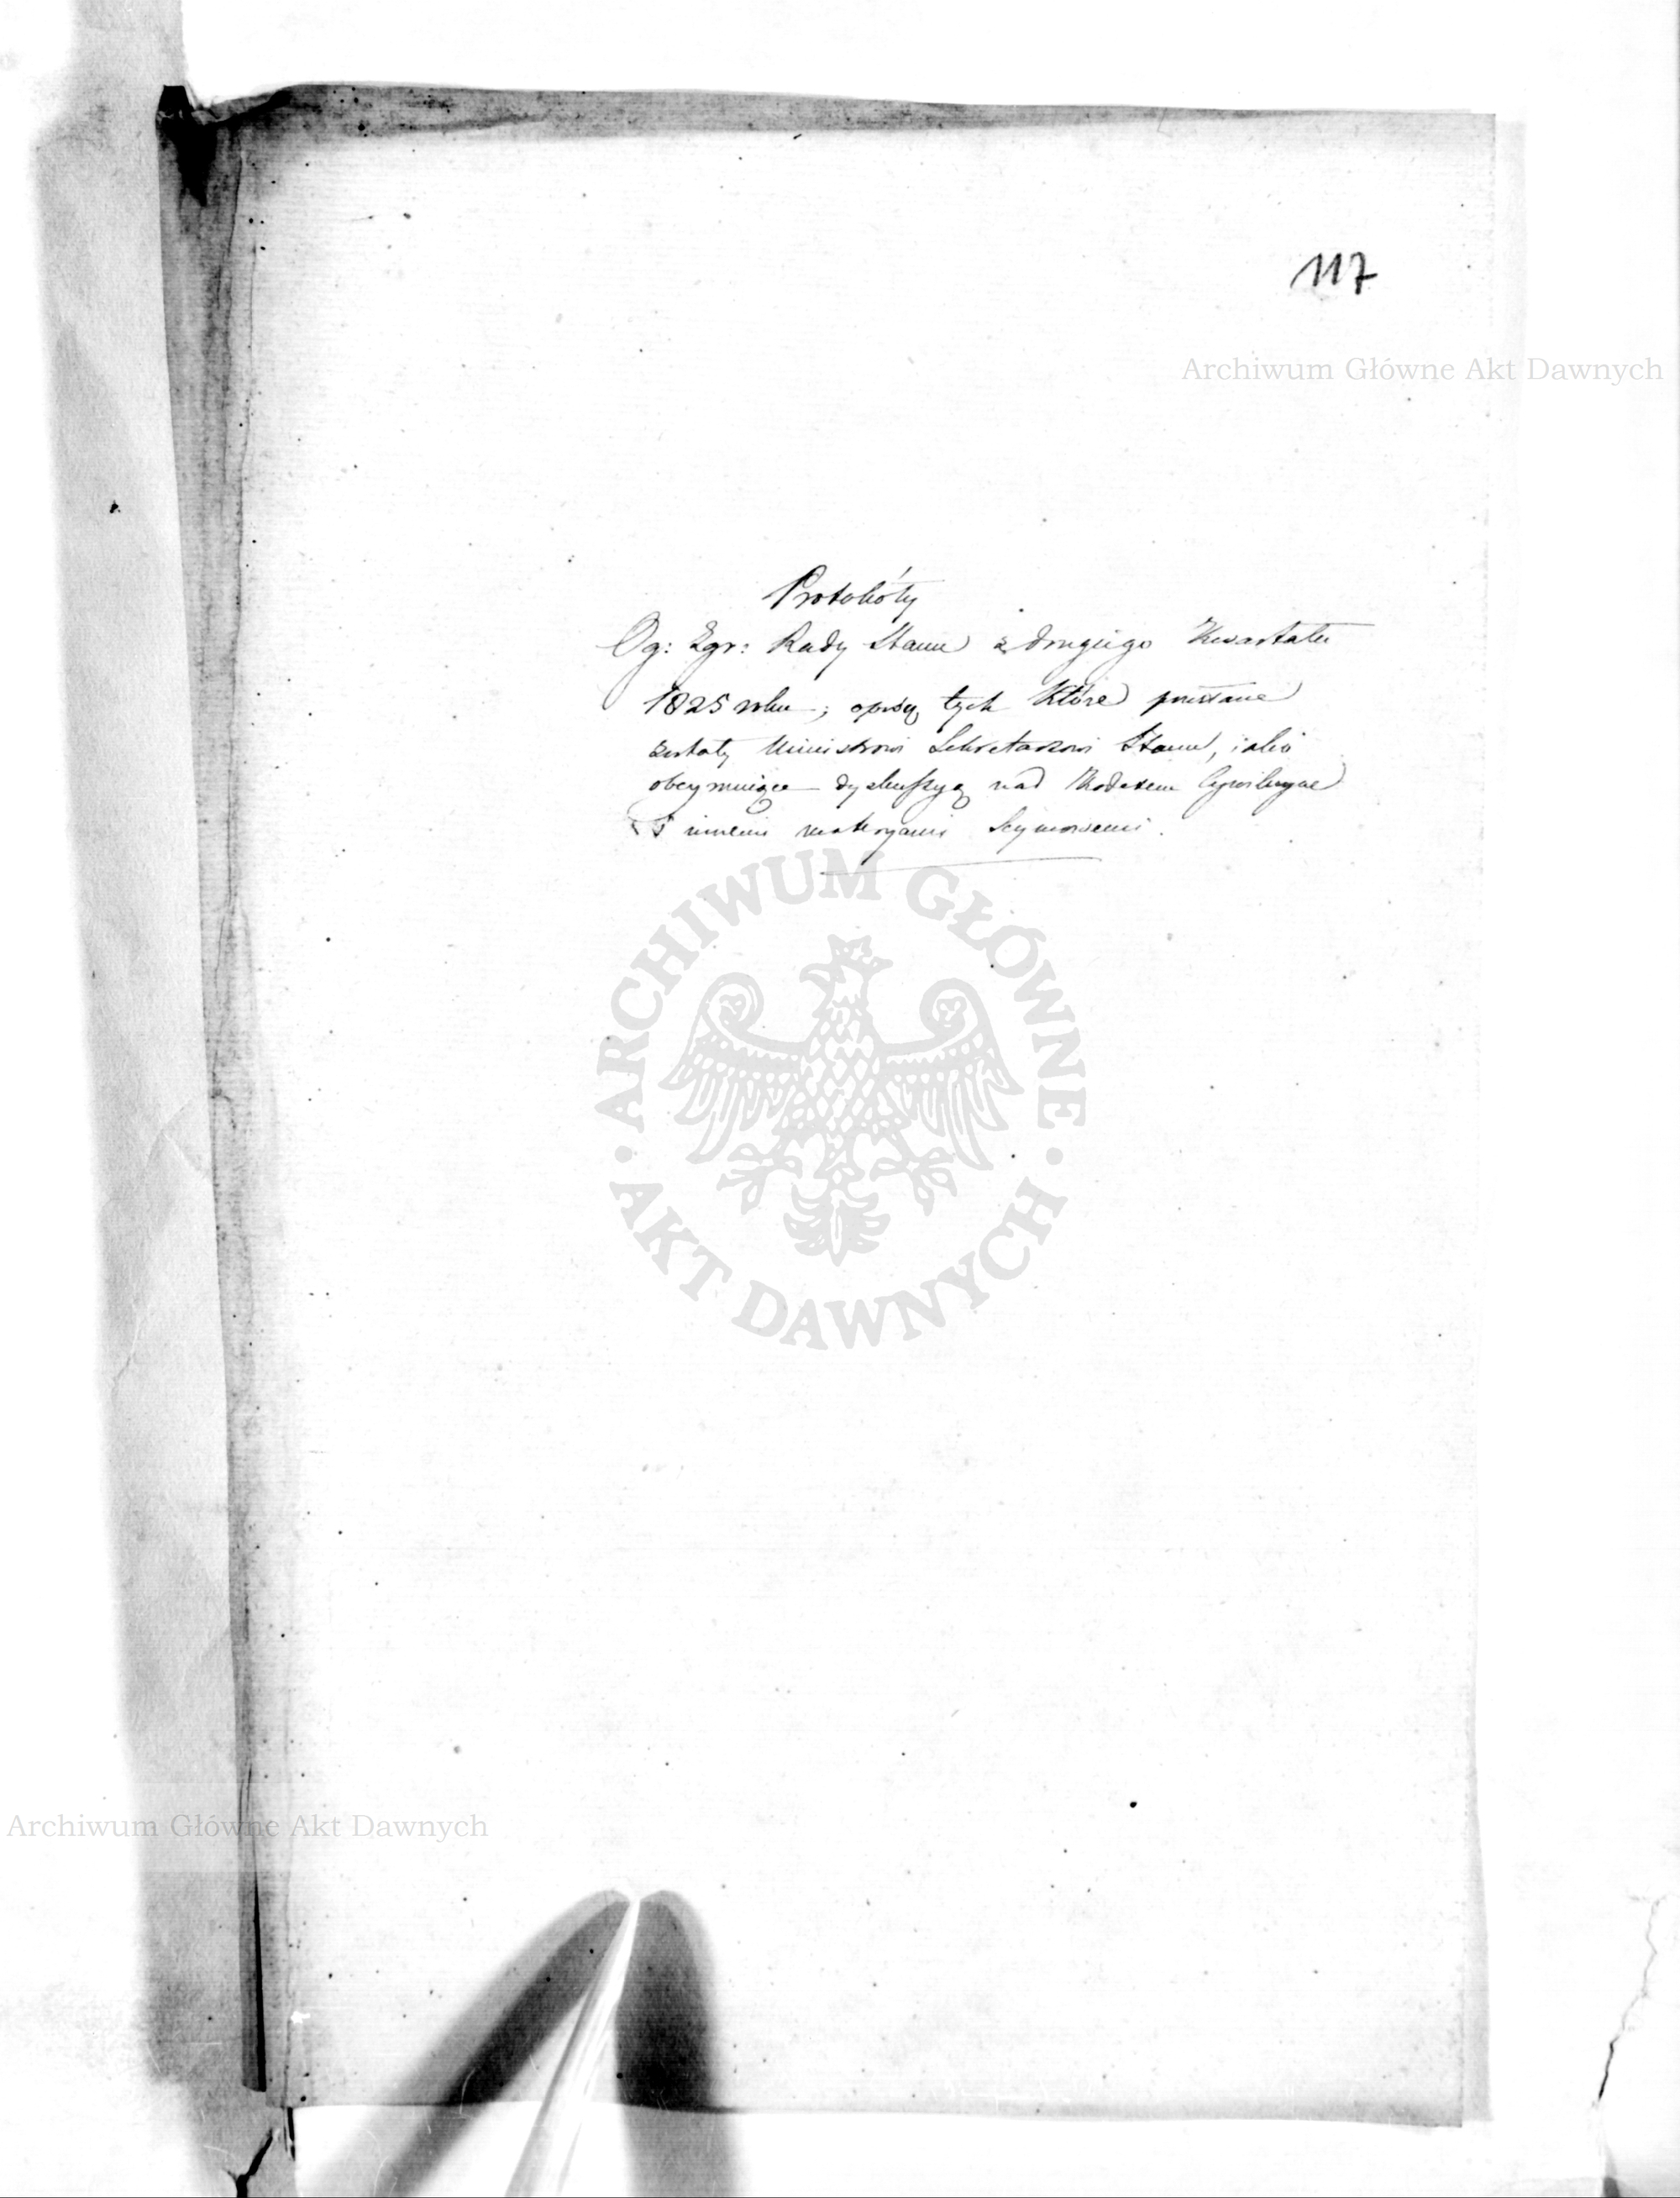 117
Archiwum Główne Akt Dawnych
Protokóły
Og: Zgr: Rady Stanu z drugiego Kwartału
1825 roku; oprócz tych które przesłane
zostały Ministrowi Sekretarzowi Stanu, iako
obeymuiące dyskussyą nad Kodexem Cywilnym
i innemi materyami Seymowemi.
ARCHIWUM GŁÓWNE
AKT DAWNYCH
Archiwum Główne Akt Dawnych